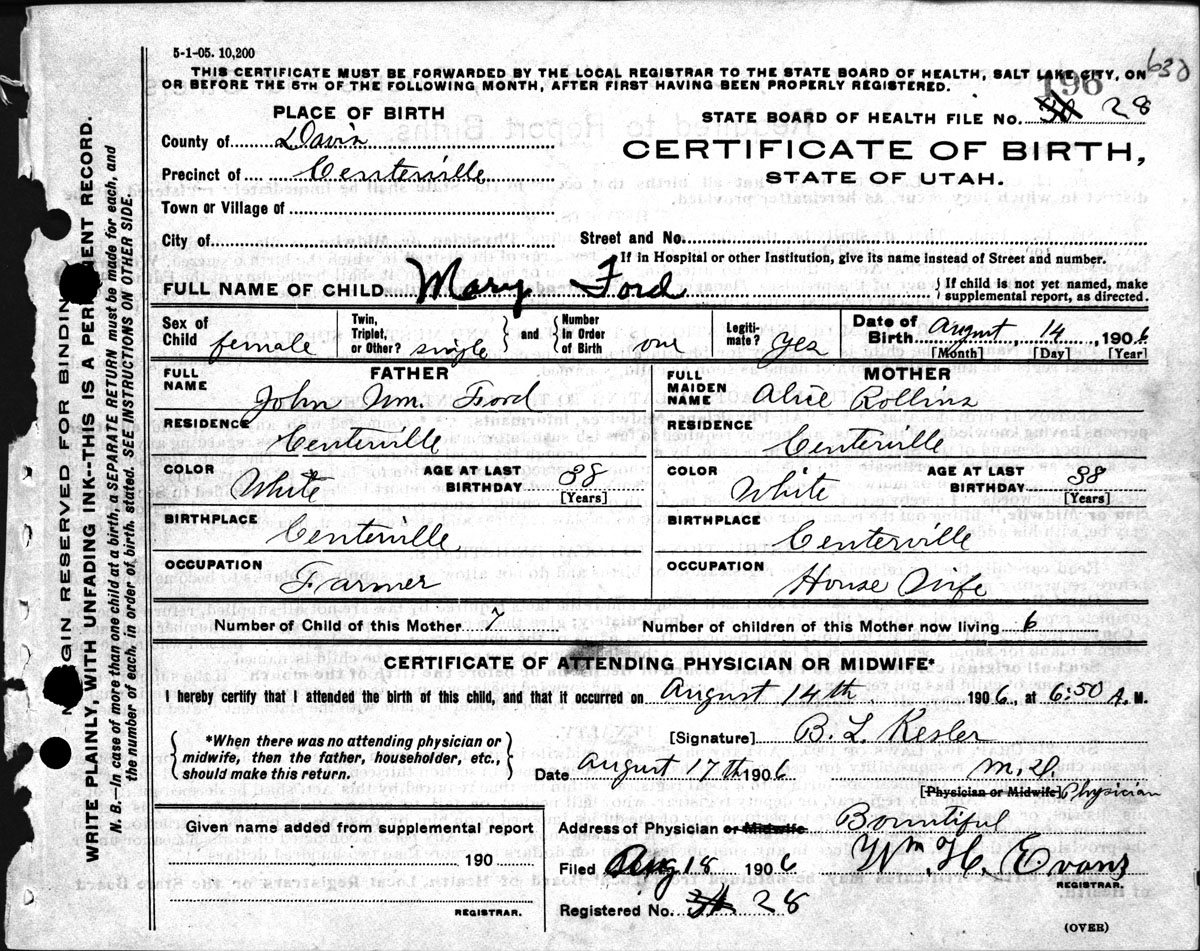 5-1-05. 10,200
THIS CERTIFICATE MUST BE FORWARDED BY THE LOCAL REGISTRAR TO THE STATE BOARD OF HEALTH, SALT LAKE CITY, ON
OR BEFORE THE 5TH OF THE FOLLOWING MONTH, AFTER FIRST HAVING BEEN PROPERLY REGISTERED.
196
PLACE OF BIRTH
STATE BOARD OF HEALTH FILE No. 28
County of Davis
CERTIFICATE OF BIRTH,
Precinct of Centerville
STATE OF UTAH.
Town or Village of
City of Street and No.
If in Hospital or other Institution, give its name instead of Street and number.
FULL NAME OF CHILD Mary Ford } If child is not yet named, make
supplemental report, as directed.
Sex of Child female Twin, Triplet, or Other? single } and { Number In Order of Birth one Legiti-mate? yes Date of Birth August, 14, 1906
[Month] [Day] [Year]
FATHER MOTHER
FULL NAME John Wm. Ford FULL MAIDEN NAME Alice Rollins
RESIDENCE Centerville RESIDENCE Centerville
COLOR White AGE AT LAST BIRTHDAY 38 [Years] COLOR White AGE AT LAST BIRTHDAY 38 [Years]
BIRTHPLACE Centerville BIRTHPLACE Centerville
OCCUPATION Farmer OCCUPATION House Wife
Number of Child of this Mother 7 Number of children of this Mother now living 6
CERTIFICATE OF ATTENDING PHYSICIAN OR MIDWIFE*
I hereby certify that I attended the birth of this child, and that it occurred on August 14th 1906, at 6:50 A. M.
*When there was no attending physician or
midwife, then the father, householder, etc.,
should make this return.
[Signature] B. L. Kesler
Date August 17th 1906 M.D.
[Physician or Midwife] Physician
Given name added from supplemental report
190
REGISTRAR.
Address of Physician or Midwife Bountiful
Filed Aug 18 1906 Wm. H. Evans
REGISTRAR.
Registered No. 28
(OVER)
MARGIN RESERVED FOR BINDING
WRITE PLAINLY, WITH UNFADING INK--THIS IS A PERMANENT RECORD.
N. B.—In case of more than one child at a birth, a SEPARATE RETURN must be made for each, and
the number of each, in order of birth, stated. SEE INSTRUCTIONS ON OTHER SIDE.